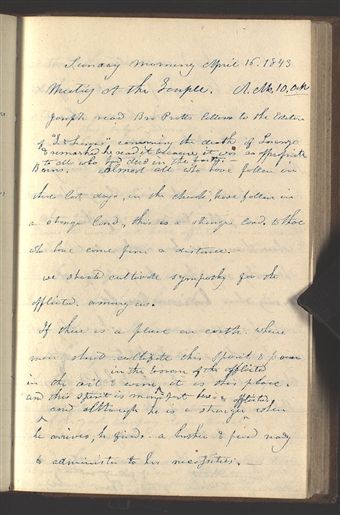 Sunday Morning April 16. 1843
Meeting at the Temple. A.M. 10, o clk
Joseph read Bro Pratts letters to the Editor
of "T & Seasons" concerning the death of Lorenzo
& remarked he read it because it was so appropriate
to all who had died in the faith. —
Barns. Almost all who have fallen in
these last days, in the church, have fallen in
a strange land, this is a strange land. to those
who have come from a distance.
we should cultivate sympathy for the
afflicted. among us.
If there is a place on earth where
men should cultivate this spirit & pour
in the bosom of the afflicted
in the oil & wine, it is this place.
and this spirit is manifest here
and although he is a stranger & afflicted when
he arrives, he finds a brother & friend ready
to administer to his necessities. —